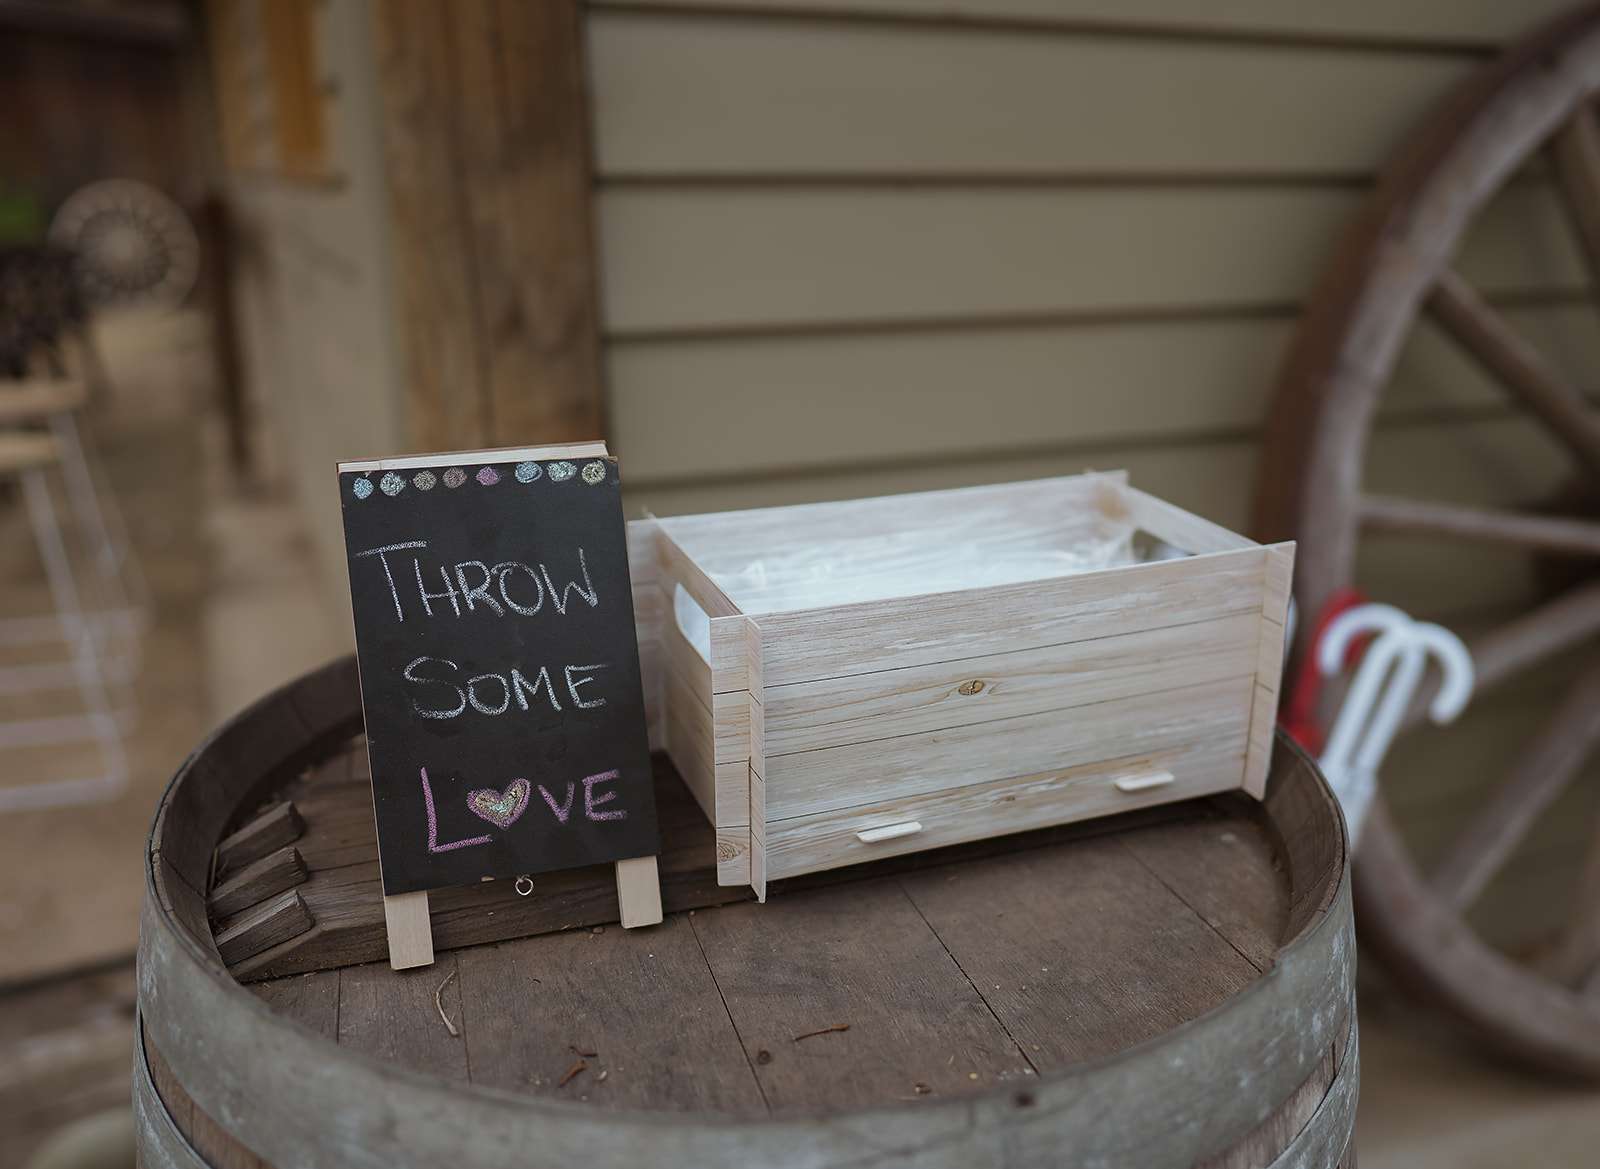 THROW
SOME
LOVE